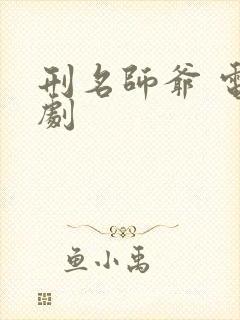 刑名師爺 電
劇
鱼小禹